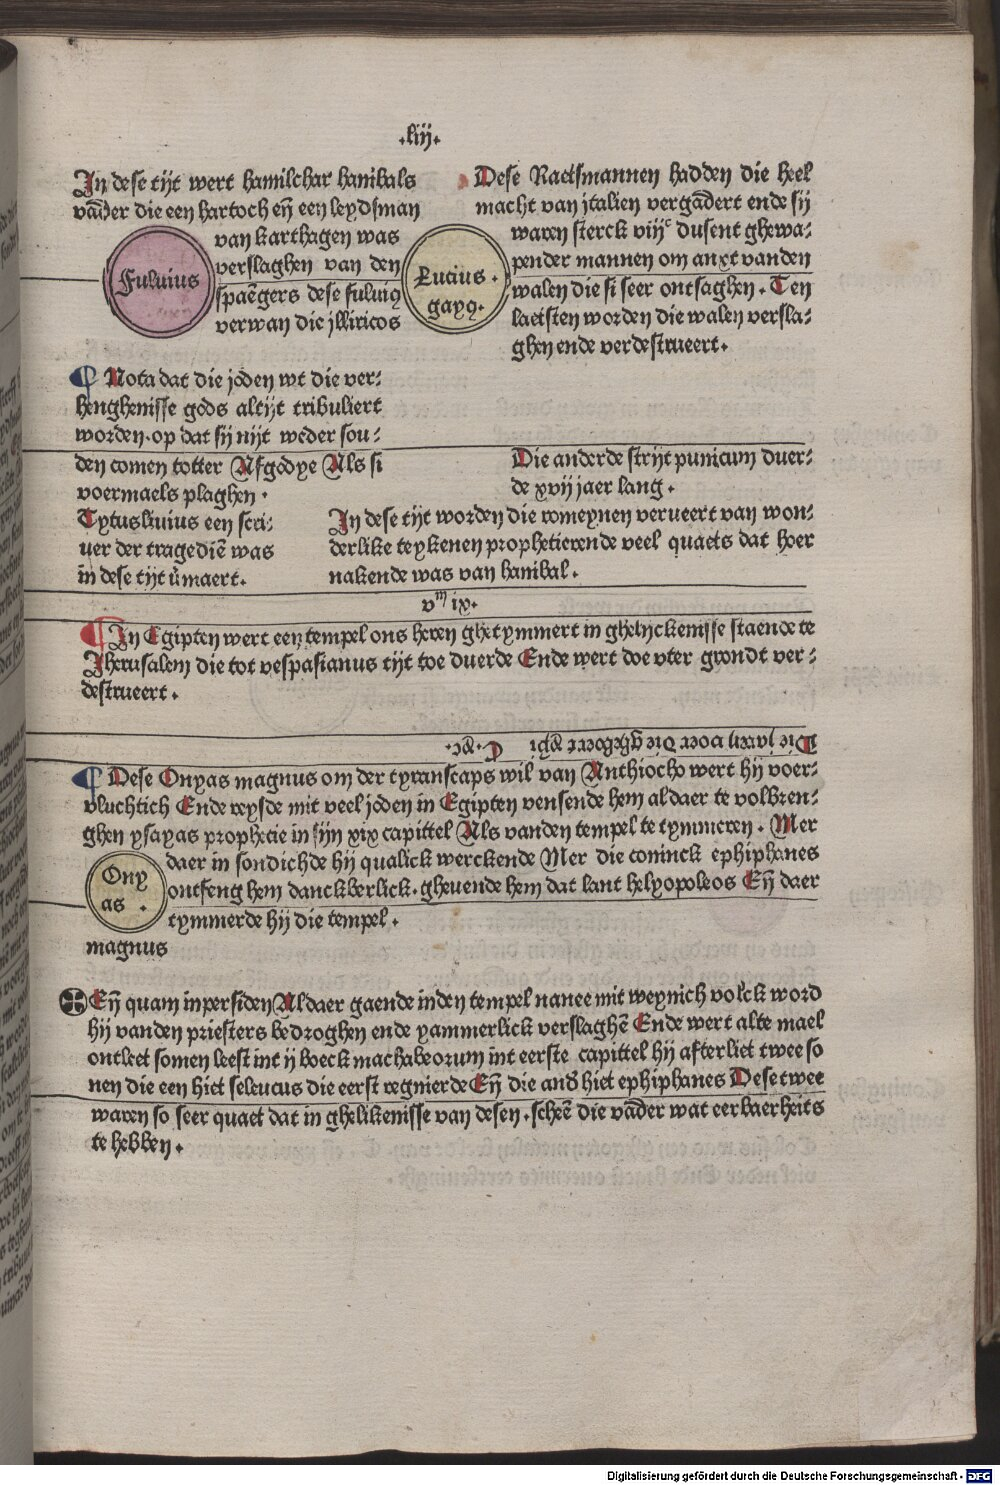 .liij.
In dese tijt wert hamilchar hanibals
vād̄er die een hartoch eñ een leydsman
van karthagen was
verslaghen van den
spaēgers dese fuluiꝯ
verwan die jlliricos
Fuluius
Dese Raetsmannen hadden die heel
macht van jtalien vergādert ende sij
waren sterck viijᶜ dusent ghewa⸗
pender mannen om anxt vanden
walen die si seer ontsaghen. Ten
laetsten worden die walen versla⸗
ghen ende verdestrueert.
Lucius.
gayꝯ.
¶ Nota dat die joden wt die ver⸗
henghenisse gods altijt tribuliert
worden. op dat sij nijt weder sou⸗
den comen totter Afgodye Als si
voermaels plaghen.
Die anderde strijt punicum duer⸗
de xvij jaer lang.
Tytusliuius een scri⸗
uer der tragediē was
in dese tijt v̄maert.
In dese tijt worden die romeynen verueert van won⸗
derlike teykenen prophetierende veel quaets dat hoer
nakende was van hanibal.
vᵐ ix.
¶ In Egipten wert een tempel ons heren ghetymmert in ghelijckenisse staende te
Jherusalem die tot vespasianus tijt toe duerde Ende wert doe vter grondt ver⸗
destrueert.
Die jaren voer die gheboert xp̄i C. ⁊c.
¶ Dese Onyas magnus om der tyranscaps wil van Anthiocho wert hij voer⸗
vluchtich Ende reysde mit veel joden in Egipten vensende hem aldaer te volbren⸗
ghen ysayas prophecie in sijn xix capittel Als vanden tempel te tymmeren. Mer
daer in sondichde hij qualick werckende Mer die coninck ephiphanes
ontfeng hem danckberlick. gheuende hem dat lant helyopoleos Eñ daer
tymmerde hij die tempel.
Ony
as.
magnus
Eñ quam in persiden Aldaer gaende inden tempel nanee mit weynich volck word
hij vanden priesters bedroghen ende yammerlick verslaghē Ende wert alte mael
ontleet somen leest int ij boeck machabeorum int eerste capittel hij afterliet twee so
nen die een hiet seleucus die eerst regnierde Eñ die and̄ hiet ephiphanes Dese twee
waren so seer quaet dat in ghelikenisse van desen. scheē die vād̄er wat eerbaerheits
te hebben.
Digitalisierung gefördert durch die Deutsche Forschungsgemeinschaft - DFG